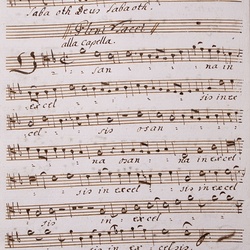 Saba oth Deus Sabaoth.
Pleni Tacet
alla Capella.
san na in
excel sis in ex
cel sis osan
na osan na in ex cel
sis in excel
sis in excel
na in excelsis.